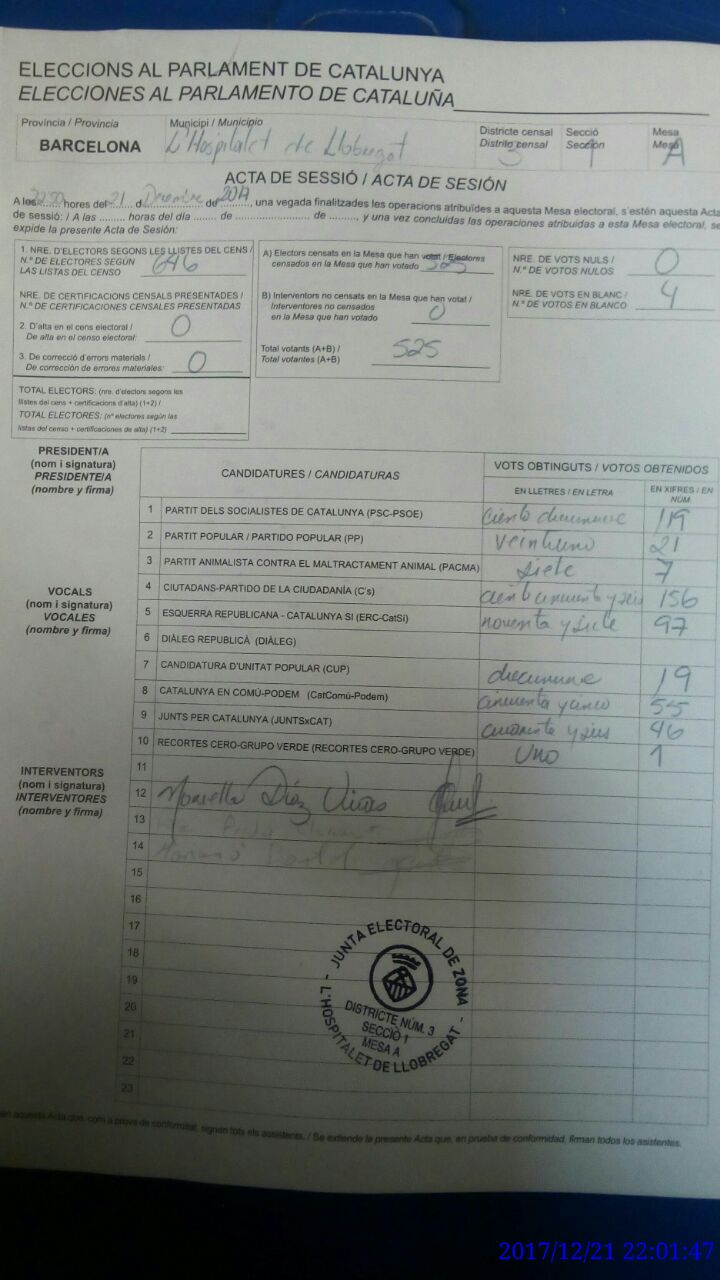 ELECCIONS AL PARLAMENT DE CATALUNYA
ELECCIONES AL PARLAMENTO DE CATALUÑA
Província / Provincia
BARCELONA
Municipi / Municipio
L'Hospitalet de Llobregat
Districte censal
Distrito censal
3
Secció
Sección
1
Mesa
Mesa
A
ACTA DE SESSIÓ / ACTA DE SESIÓN
A les hores del 21 d Diciembre de 2017, una vegada finalitzades les operacions atribuïdes a aquesta Mesa electoral, s'estén aquesta Acta
de sessió: / A las ........ horas del día ....... de .................... de ........., y una vez concluidas las operaciones atribuidas a esta Mesa electoral, se
expide la presente Acta de Sesión:
1. NRE. D'ELECTORS SEGONS LES LLISTES DEL CENS /
N.º DE ELECTORES SEGÚN
LAS LISTAS DEL CENSO
646
NRE. DE CERTIFICACIONS CENSALS PRESENTADES /
N.º DE CERTIFICACIONES CENSALES PRESENTADAS
2. D'alta en el cens electoral /
De alta en el censo electoral:
0
3. De correcció d'errors materials /
De corrección de errores materiales:
0
TOTAL ELECTORS: (nre. d'electors segons les
llistes del cens + certificacions d'alta) (1+2) /
TOTAL ELECTORES: (nº electores según las
listas del censo + certificaciones de alta) (1+2)
A) Electors censats en la Mesa que han votat / Electores
censados en la Mesa que han votado
525
B) Interventors no censats en la Mesa que han votat /
Interventores no censados
en la Mesa que han votado
0
Total votants (A+B) /
Total votantes (A+B)
525
NRE. DE VOTS NULS /
N.º DE VOTOS NULOS
0
NRE. DE VOTS EN BLANC /
N.º DE VOTOS EN BLANCO
4
PRESIDENT/A
(nom i signatura)
PRESIDENTE/A
(nombre y firma)
VOCALS
(nom i signatura)
VOCALES
(nombre y firma)
INTERVENTORS
(nom i signatura)
INTERVENTORES
(nombre y firma)
CANDIDATURES / CANDIDATURAS
VOTS OBTINGUTS / VOTOS OBTENIDOS
EN LLETRES / EN LETRA
EN XIFRES / EN NÚM.
1 PARTIT DELS SOCIALISTES DE CATALUNYA (PSC-PSOE) ciento diecinueve 119
2 PARTIT POPULAR / PARTIDO POPULAR (PP) veintiuno 21
3 PARTIT ANIMALISTA CONTRA EL MALTRACTAMENT ANIMAL (PACMA) siete 7
4 CIUTADANS-PARTIDO DE LA CIUDADANÍA (C's) ciento cincuenta y seis 156
5 ESQUERRA REPUBLICANA - CATALUNYA SI (ERC-CatSí) noventa y siete 97
6 DIÀLEG REPUBLICÀ (DIÀLEG)
7 CANDIDATURA D'UNITAT POPULAR (CUP) diecinueve 19
8 CATALUNYA EN COMÚ-PODEM (CatComú-Podem) cincuenta y cinco 55
9 JUNTS PER CATALUNYA (JUNTSxCAT) cuarenta y seis 46
10 RECORTES CERO-GRUPO VERDE (RECORTES CERO-GRUPO VERDE) uno 1
11
12 Díaz
13
14
15
16
17
18
19
20
21
22
23
JUNTA ELECTORAL DE ZONA
DISTRICTE NÚM. 3
SECCIÓ 1
MESA A
L'HOSPITALET DE LLOBREGAT
en aquesta Acta que, com a prova de conformitat, signen tots els assistents. / Se extiende la presente Acta que, en prueba de conformidad, firman todos los asistentes.
2017/12/21 22:01:47